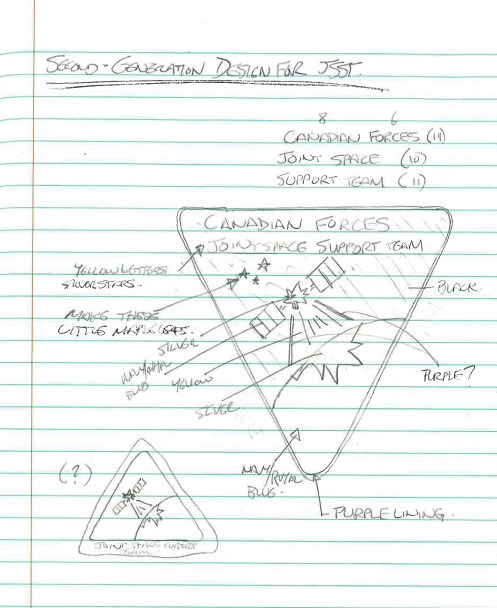 SECOND-GENERATION DESIGN FOR JSST.
8 6
CANADIAN FORCES (14)
JOINT SPACE (10)
SUPPORT TEAM (11)
CANADIAN FORCES
JOINT SPACE SUPPORT TEAM
YELLOW LETTERS
SILVER STARS.
BLACK.
MAKE THESE
LITTLE MAPLE LEAFS.
SILVER
NAVY/ROYAL
BLUE
YELLOW
SILVER
PURPLE?
NAVY/ROYAL
BLUE.
PURPLE LINING.
(?)
JOINT SPACE SUPPORT
TEAM